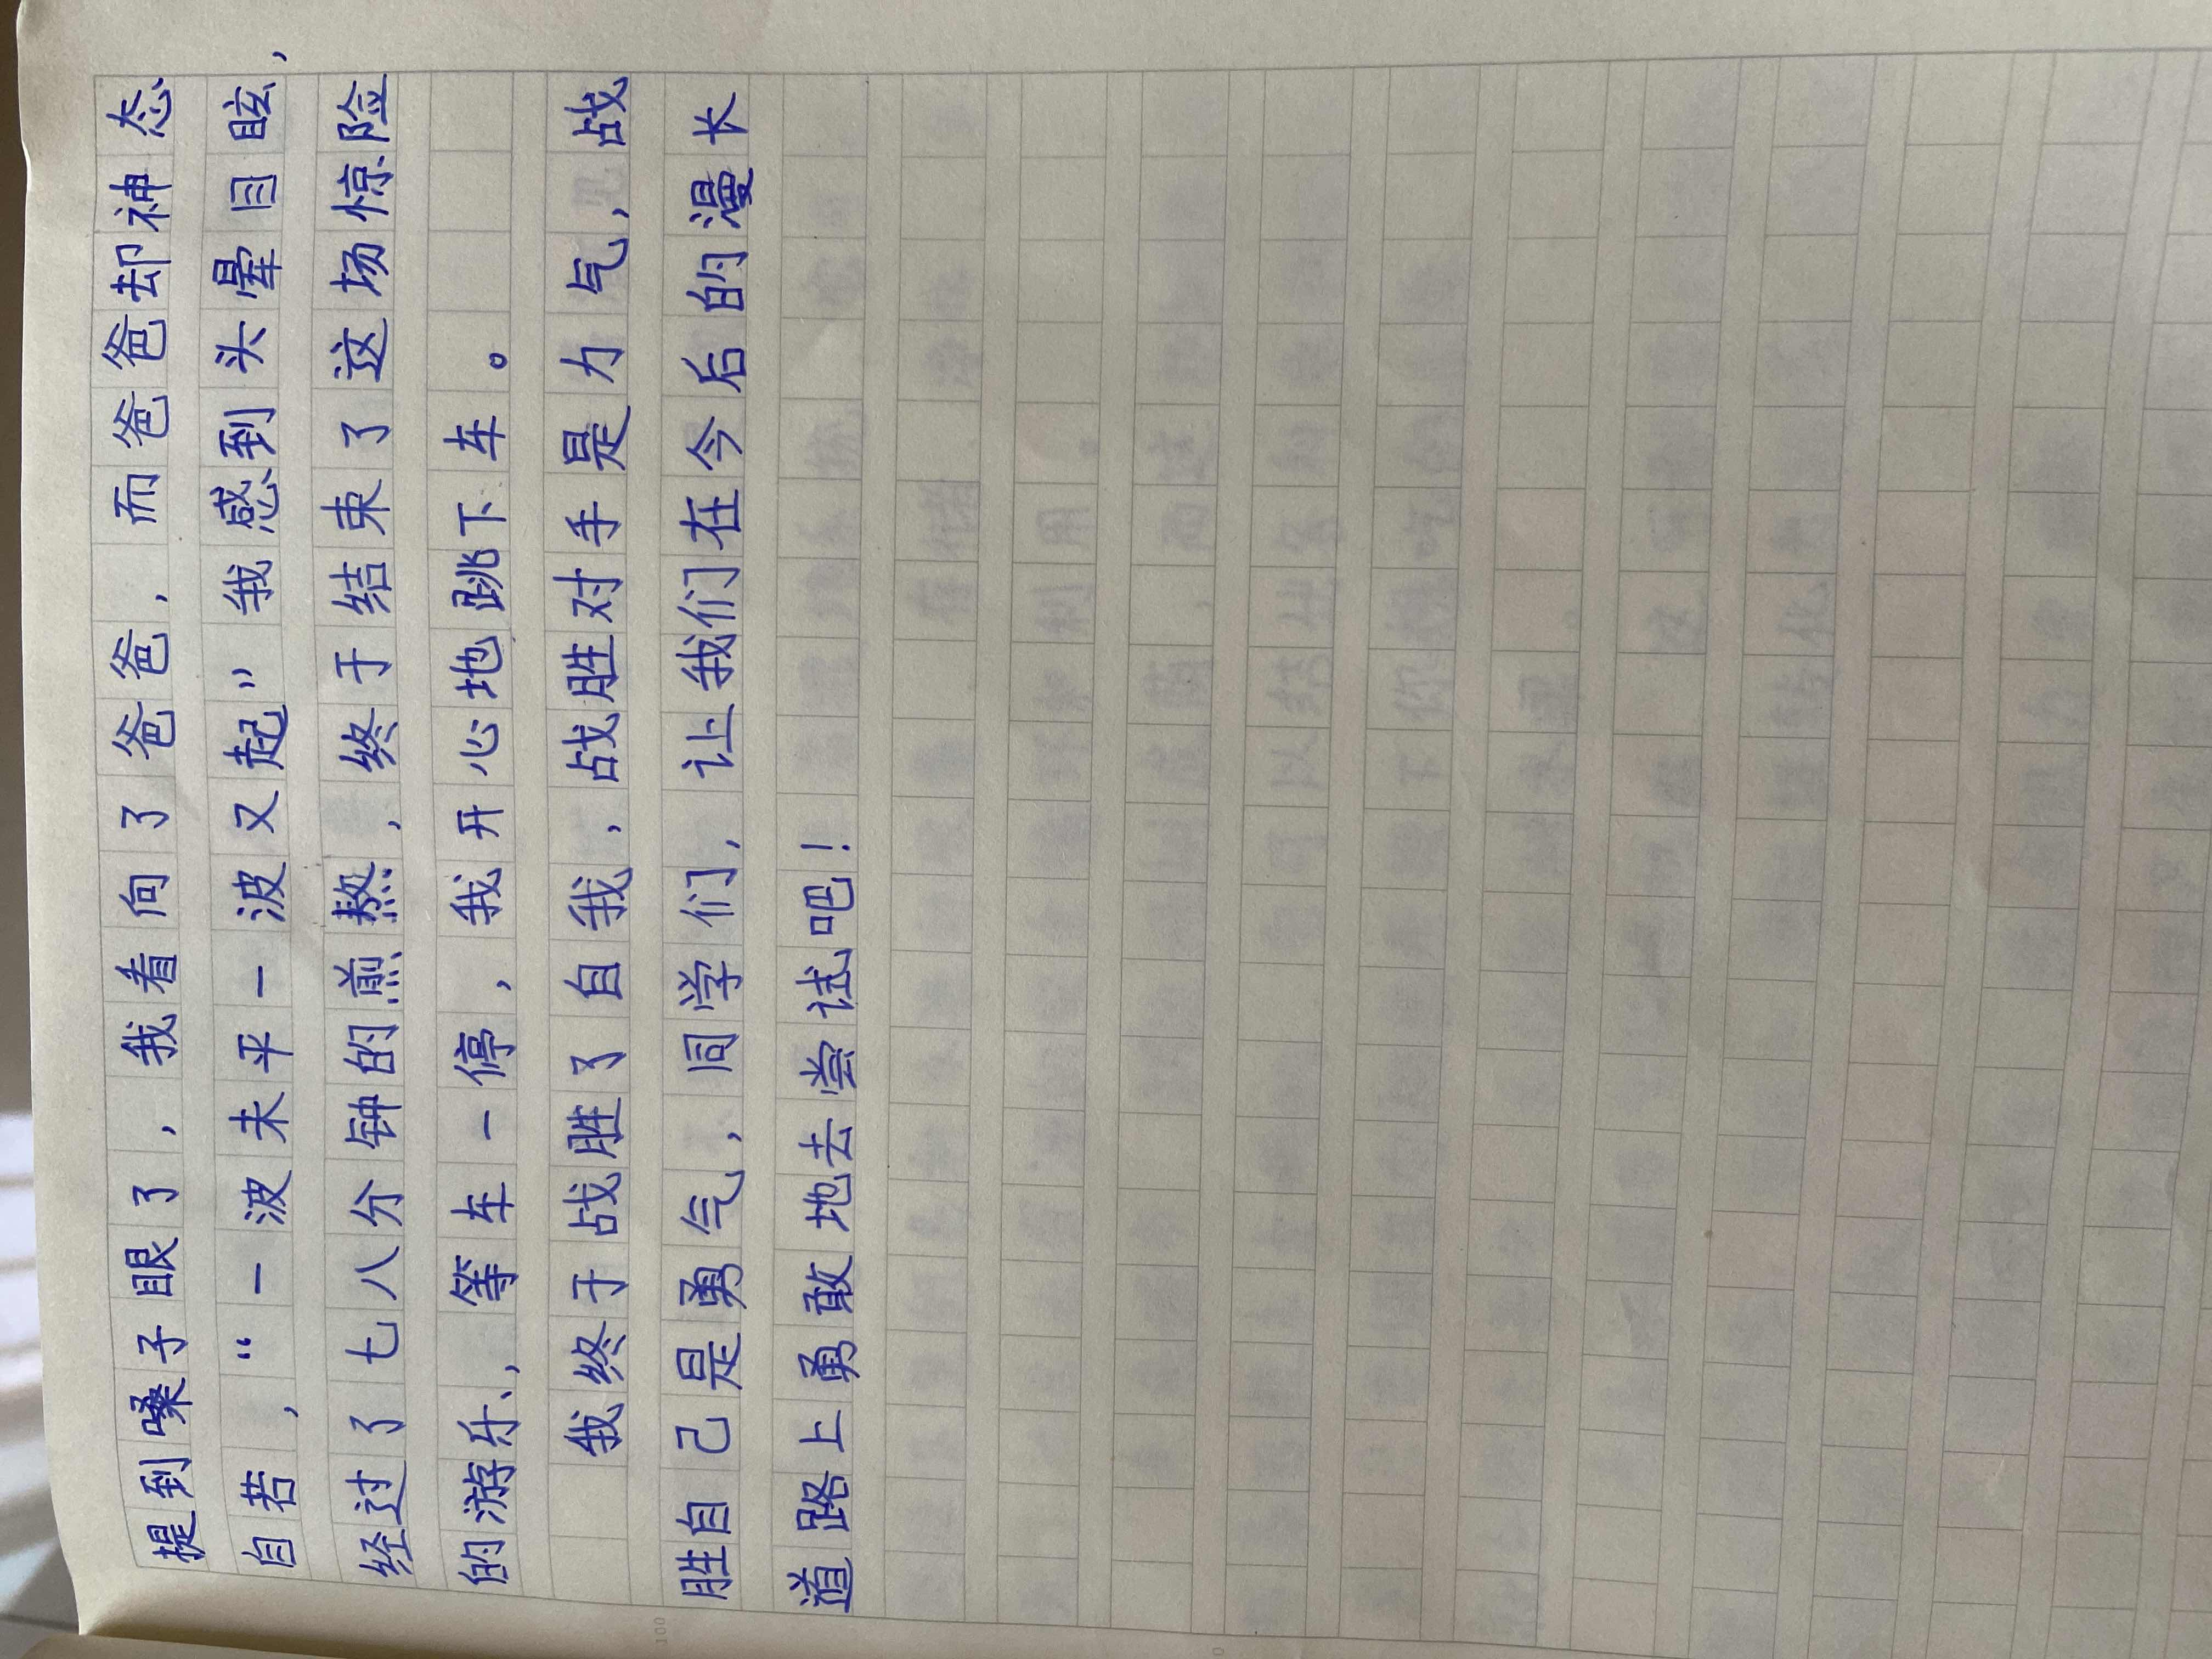 提到嗓子眼了，我看向了爸爸，而爸爸却神态
自若，“一波未平一波又起”我感到头晕目眩，
经过了七八分钟的煎熬，终于结束了这场惊险
的游乐，等车一停，我开心地跳下车。
我终于战胜了自我，战胜对手是力气，战
胜自己是勇气，同学们，让我们在今后的漫长
道路上勇敢地去尝试吧！
100